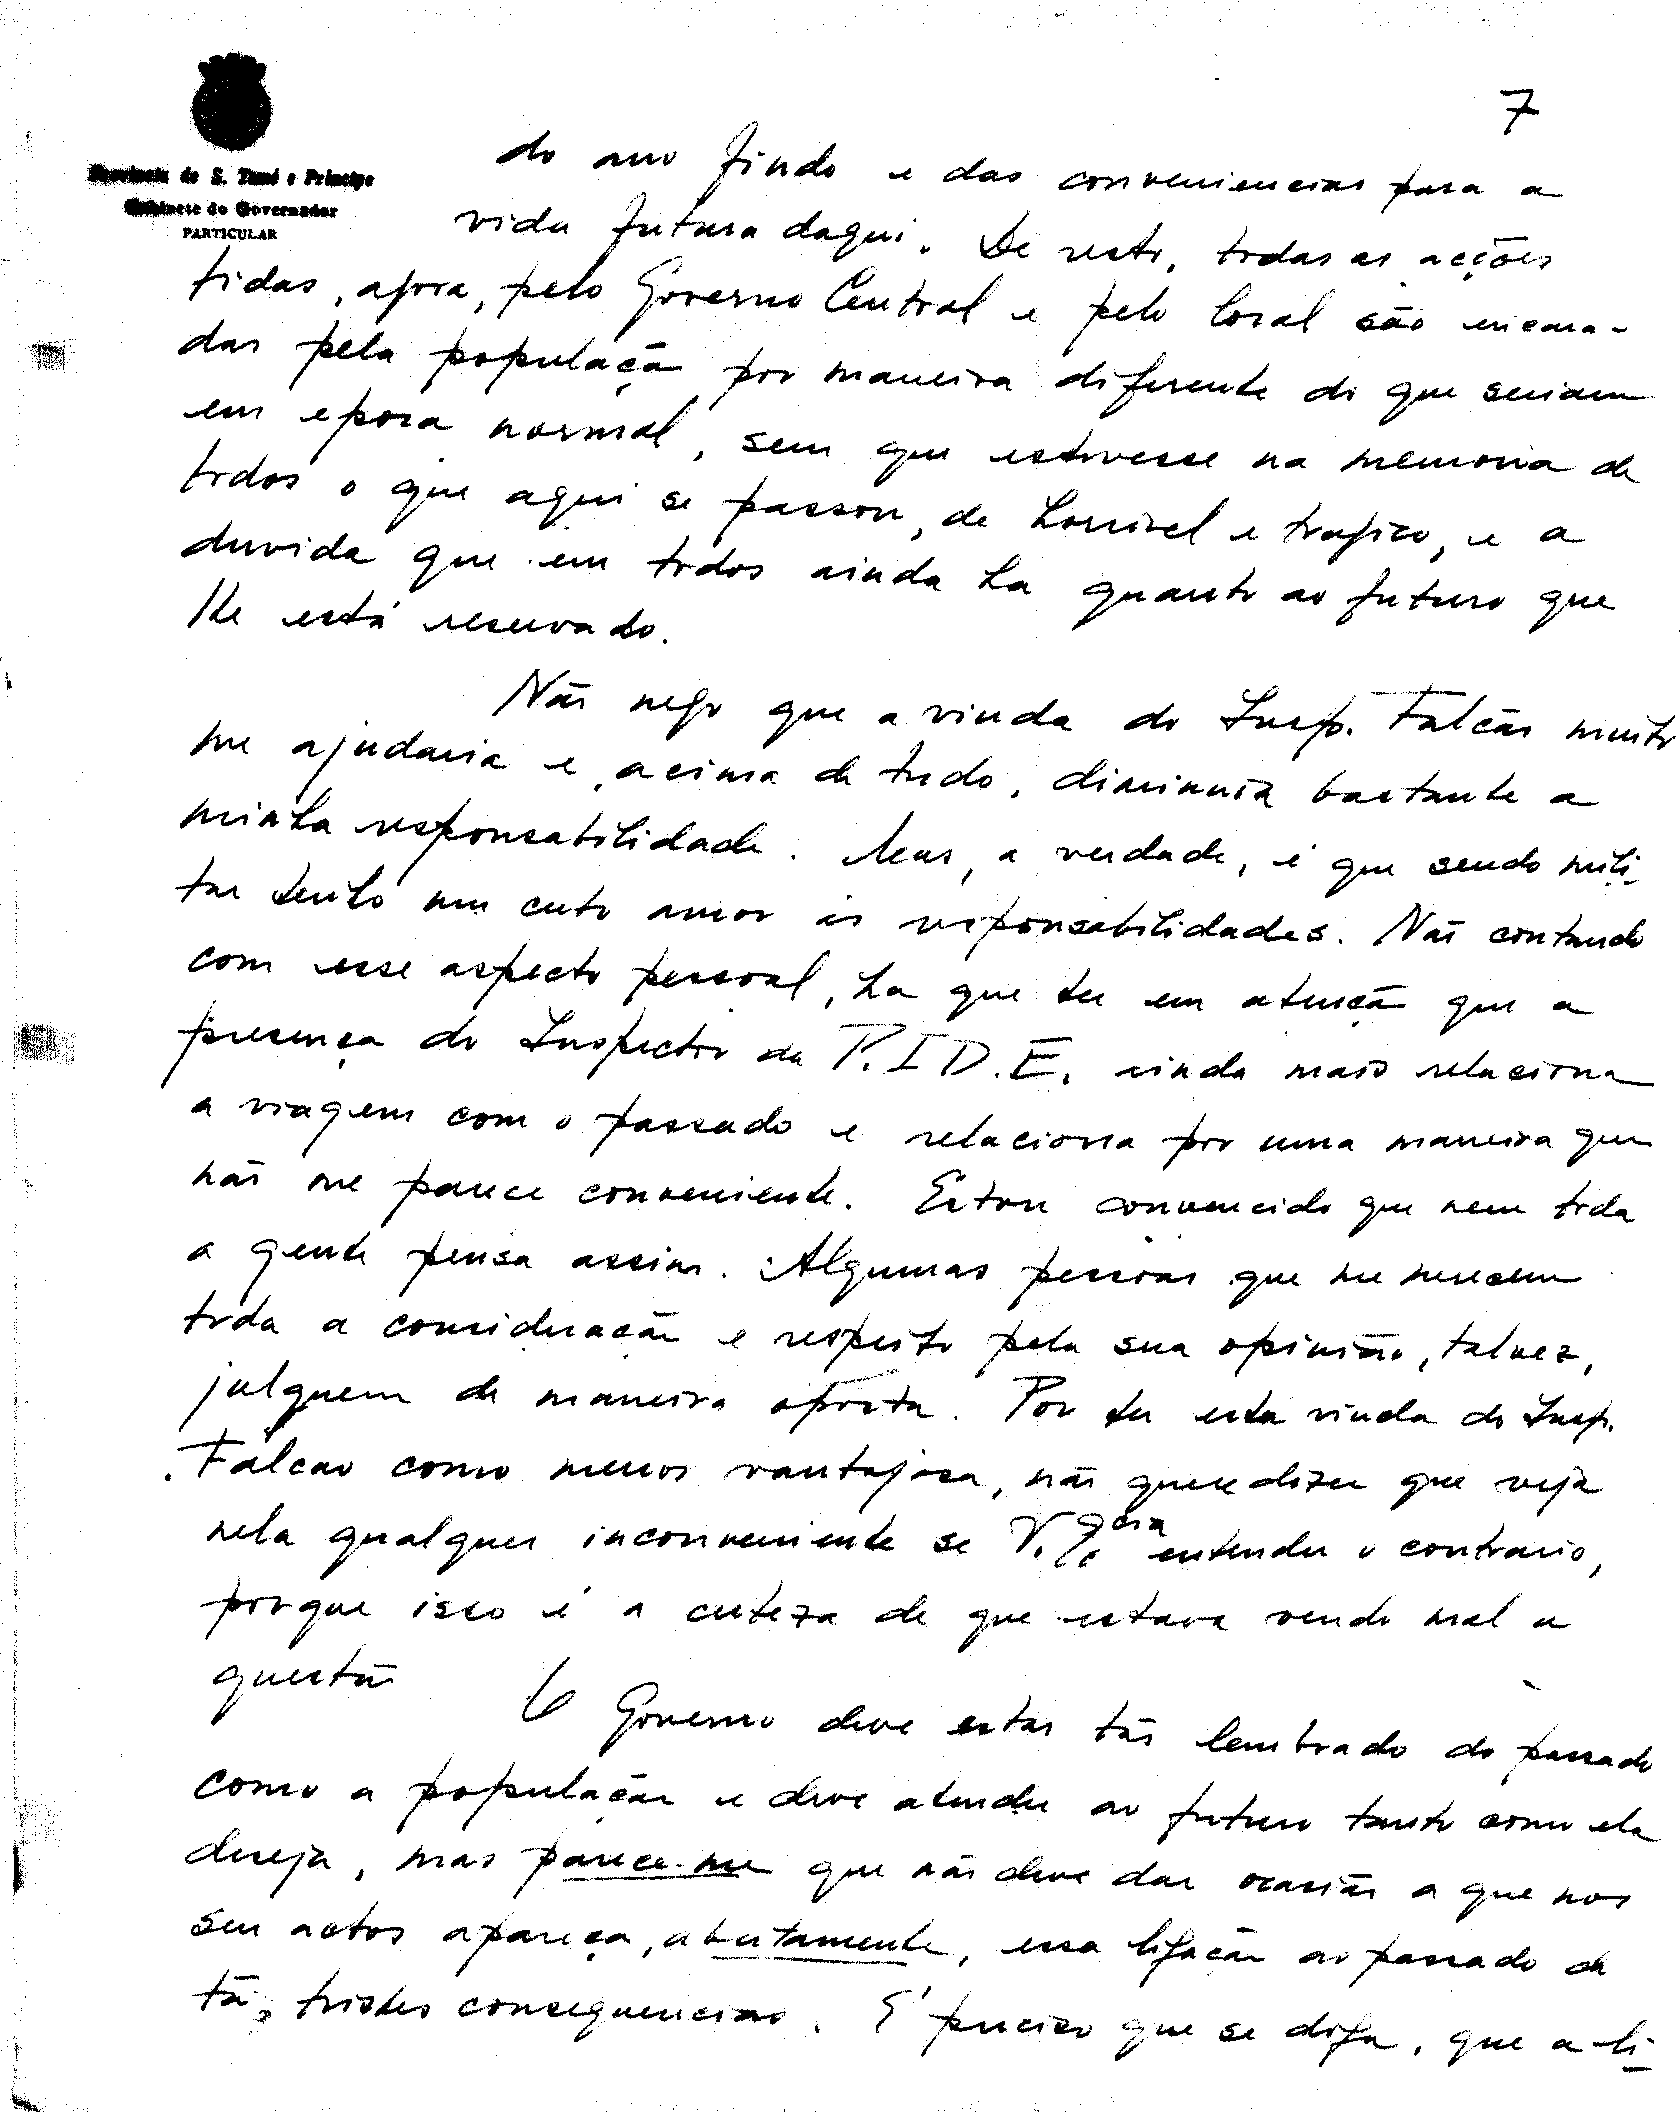 7
Provincia de S. Tomé e Príncipe
Gabinete do Governador
PARTICULAR
do ano findo e das conveniencias para a
vida futura daqui. De resto, todas as acções
tidas, agora, pelo Governo Central e pelo local são encara-
das pela população por maneira diferente do que seriam
em epoca normal, sem que estivesse na memoria de
todos o que aqui se passou, de horrivel e tragico, e a
duvida que em todos ainda ha quanto ao futuro que
lhe está reservado.
Não nego que a vinda do Insp. Falcão muito
me ajudaria e, acima de tudo, diminuia bastante a
minha responsabilidade. Mas, a verdade, é que sendo mili-
tar tenho um certo amor ás responsabilidades. Não contando
com esse aspecto pessoal, ha que ter em atenção que a
presença do Inspector da P.I.D.E. ainda mais relaciona
a viagem com o passado e relaciona por uma maneira que
não me parece conveniente. Estou convencido que nem toda
a gente pensa assim. Algumas pessoas que me merecem
toda a consideração e respeito pela sua opinião, talvez,
julguem de maneira oposta. Por ter esta vinda do Insp.
Falcao como menos vantajosa, não quere dizer que veja
nela qualquer inconveniente se V. Ex.cia entender o contrario,
porque isso é a certeza de que estava vendo mal a
questão
O Governo deve estar tão lembrado do passado
como a população e deve atender ao futuro tanto como ela
deseja, mas parece-me que não deve dar ocasião a que nos
seus actos apareça, abertamente, essa ligação ao passado de
tão tristes consequencias. É preciso que se diga, que a li-